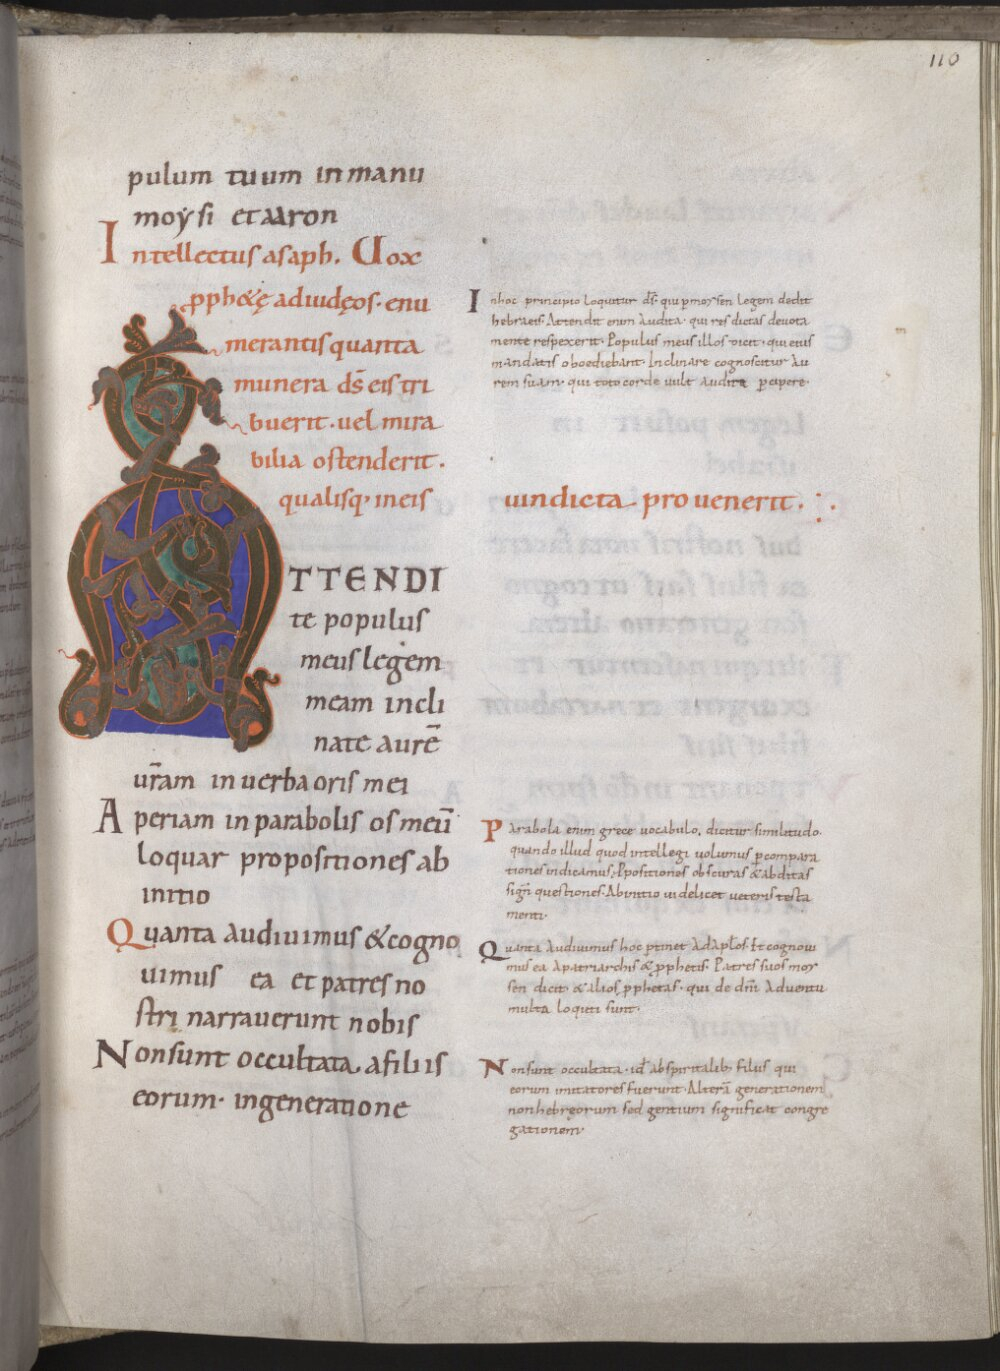 110
pulum tuum in manu
moysi et aaron
Intellectus asaph. Uox
pphetę ad iudęos. enu
merantis quanta
munera ds̄ eis tri
buerit. uel mira
bilia ostenderit.
qualisq; in eis uindicta prouenerit.
ATTENDI
te populus
meus legem
meam incli
nate aurē
ur̄am in uerba oris mei
Aperiam in parabolis os meū
loquar propositiones ab
initio
Quanta audiuimus & cogno
uimus ea et patres no
stri narrauerunt nobis
Non sunt occultata. a filiis
eorum. in generatione
In hoc principio loquitur ds̄. qui p moysen legem dedit
hebraeis. Attendit enim audita. qui res dictas deuota
mente respexerit. Populus meus illos dicit. qui eius
mandatis oboediebant. Inclinare cognoscitur au
rem suam. qui toto corde uult audita percipere.
Parabola enim grece uocabulo, dicitur similitudo.
quando illud quod intellegi uolumus p compara
tiones indicamus; Ppositiones obscuras & abditas
sign̄ questiones. Ab initio uidelicet ueteris testa
menti.
Quanta audiuimus hoc ptinet ad apl̄os. Et cognoui
mus ea a patriarchis & pphetis. Patres suos moy
sen dicit. & alios pphetas. qui de dn̄i aduentu
multa locuti sunt.
Non sunt occultata. id ab spiritalib; filiis qui
eorum imitatores fuerunt. Alterā generationem
non hebreorum sed gentium significat congre
gationem.